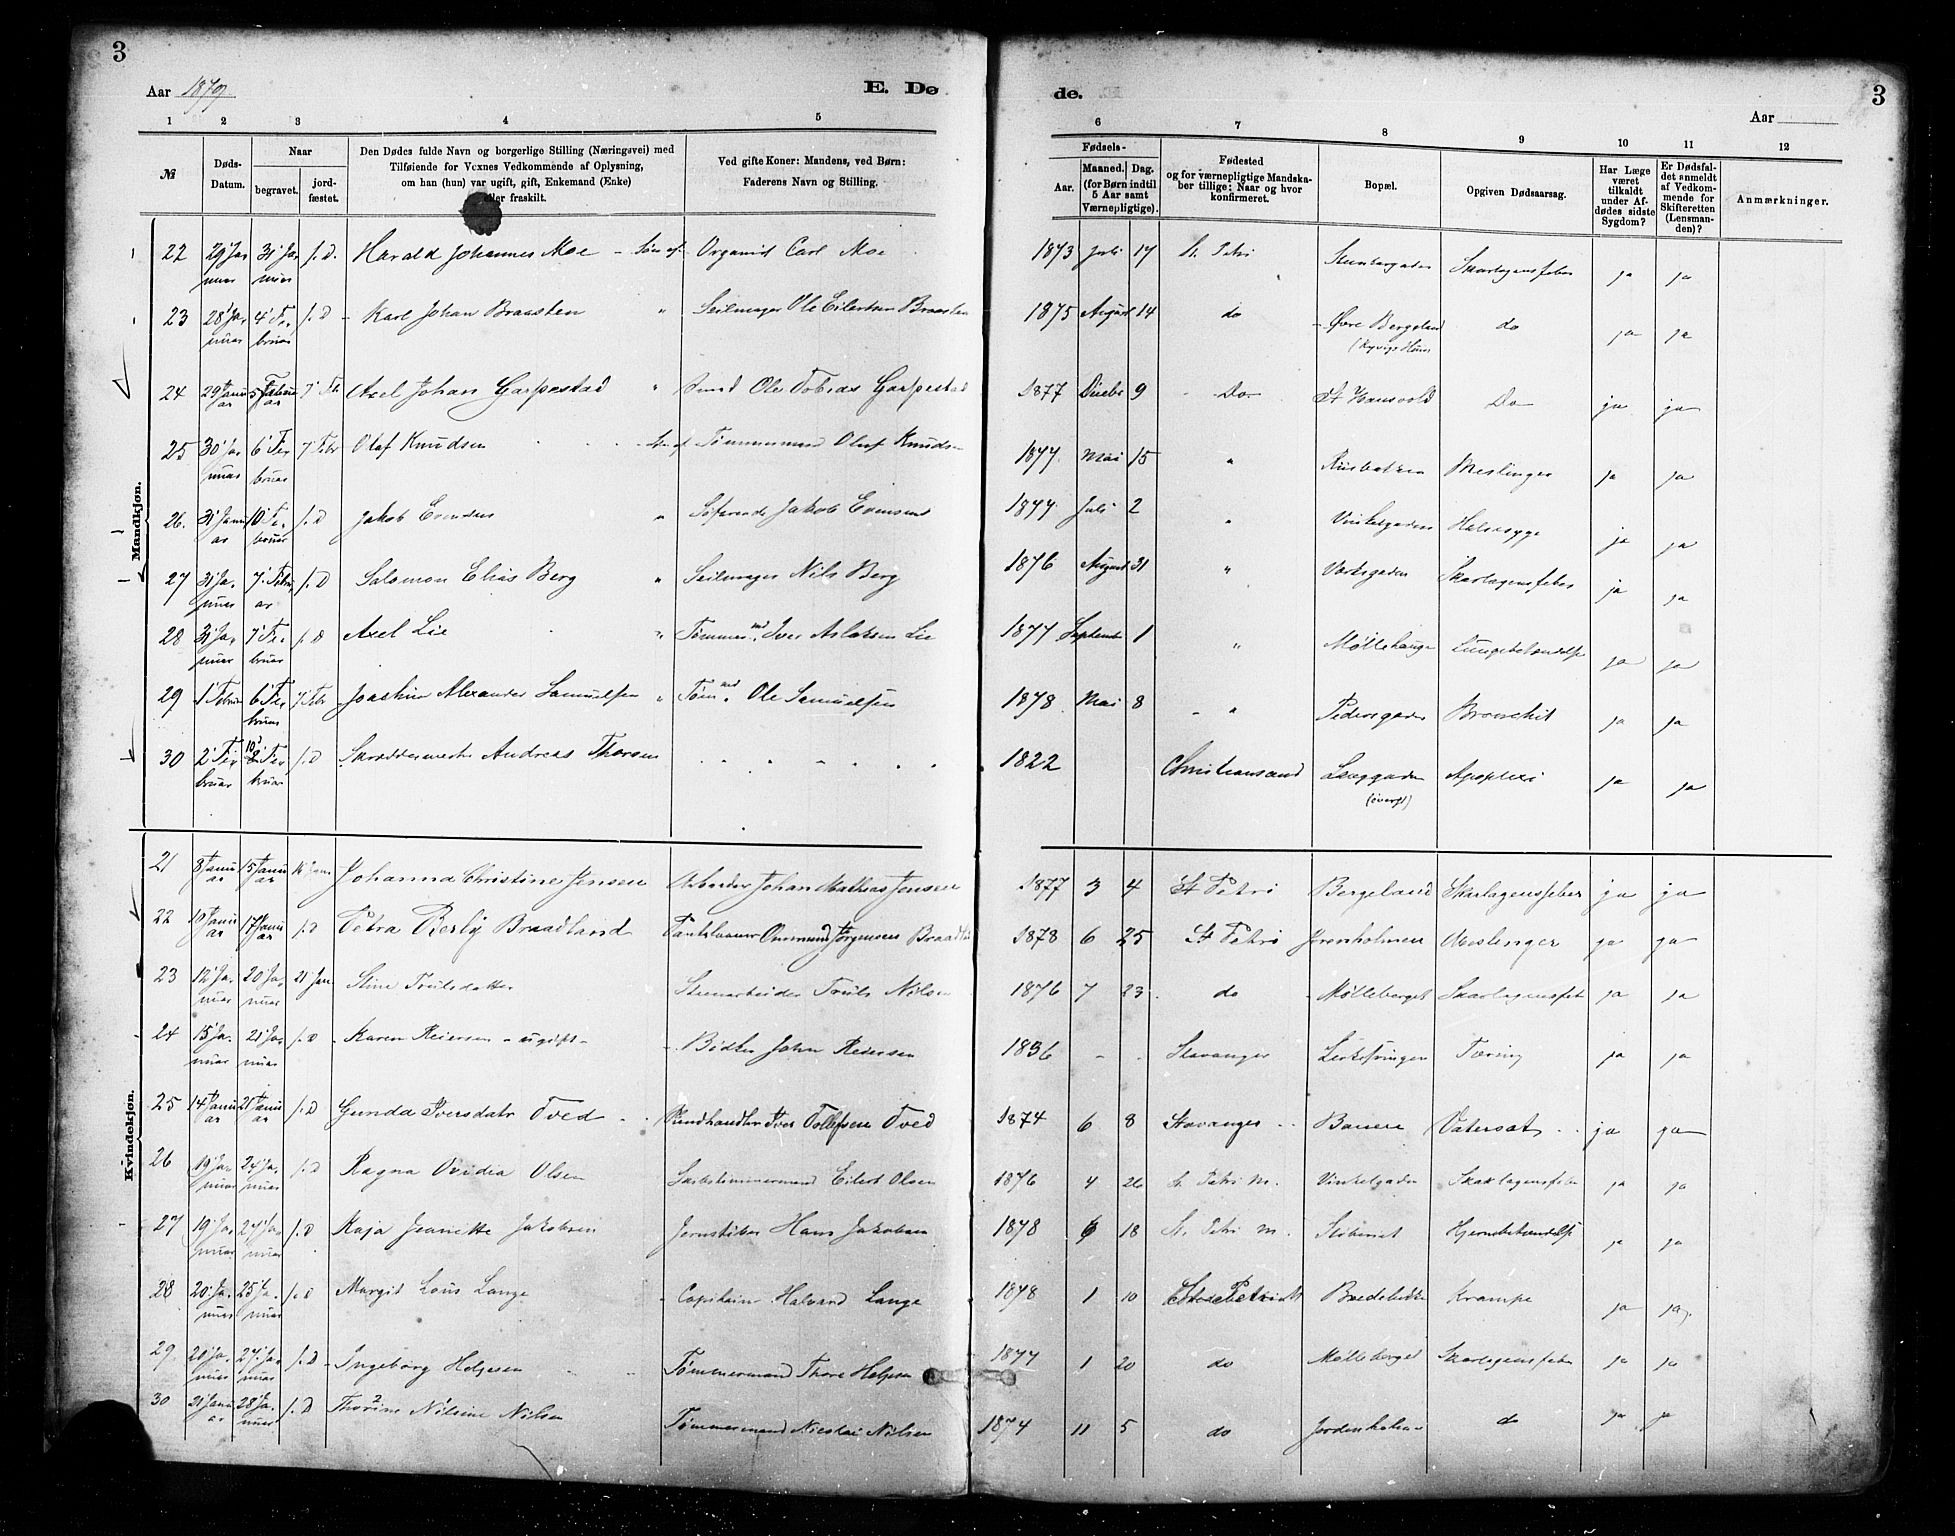 3
Aar 1879.
E. Dø
de.
Aar
3
1 2 3 4 5 6 7 8 9 10 11 12
№
Døds-Datum.
Naar
begravet.
jord-fæstet.
Den Dødes fulde Navn og borgerlige Stilling (Næringsvei) med
Tilføiende for Voxnes Vedkommende af Oplysning,
om han (hun) var ugift, gift, Enkemand (Enke)
eller fraskilt.
Ved gifte Koner: Mandens, ved Børn:
Faderens Navn og Stilling.
Fødsels-
Aar.
Maaned. Dag.
(for Børn indtil
5 Aar samt
Værnepligtige).
Fødested
og for værnepligtige Mandska-
ber tillige: Naar og hvor
konfirmeret.
Bopæl.
Opgiven Dødsaarsag.
Har Læge
været
tilkaldt
under Af-
dødes sidste
Sygdom?
Er Dødsfal-
det anmeldt
af Vedkom-
mende for
Skifteretten
(Lensman-
den)?
Anmærkninger.
Mandkjøn.
22 29' Januar 31' Januar f.D. Harald Johannes Moe - Søn af Organist Carl Moe 1873 Juli 17 St. Petri Skarlagensfeber ja ja
23 28' Januar 4' Februar f.D - Karl Johan Braasten " Seilmager Ole Eilertsen Braasten 1875 August 14 do - Øvre Bergeland do ja ja
24 29' Januar 5 Februar 7' Febr Axel Johan Garpestad " Ole Tobias Garpestad 1877 9 - Do - St Hansvold Do ja ja
25 30' Januar 6' Februar 7' Febr Olaf Knudsen Søn af Tømmermand Oluf Knudsen 1877. Mai 15 " Meslinger ja ja
26. 31' Januar 10' Februar f.D Jakob Evensen " Søfarende Jakob Evensen 1877. Juli 2 " Vinkelgaden Halssyge ja ja
27 31' Januar 7' Februar f.D Salomon Elias Berg " Seilmager Nils Berg 1876 August 31 " Skarlagensfeber ja ja
28 31' Januar 7' Februar f.D Axel Lie " Tømmermd. Iver Aslaksen Lie 1877 September 1 " Møllehaugen Lungebetændelse ja ja
29 1' Februar 6' Februar 7' Febr Joachim Alexander Samuelsen " Tømmd. Ole Samuelsen 1878 Mai 8 - " Pedersgaden Bronchit ja ja
30 2' Februar 10' Februar f.D Skræddermester Andreas Thorsen " " " " " " 1822 Christianssand Langgaden Apoplexi ja ja
Kvindekjøn.
21 8' Januar 15' Januar 16 Janr Johanna Christine Jensen Arbeider Johan Mathias Jensen 1877 3 4 St Petri Bergeland Skarlagensfeber ja ja
22 10' Januar 17' Januar f.D Petra Berly Braadland Ommund Jørgensen Braadland 1878 6 25 St Petri Jorenholmen Meslinger ja ja
23 12' Januar 20' Januar 21' Jan Stine Trulsdatter Stenarbeider Truls Nilsen 1876 7 23 do - Mølleberget Skarlagensfeb ja ja
24 15' Januar 21' Januar f.D - Karen Reiersen - ugift - - Bødker John Reiersen 1836 - - Stavanger Tæring ja ja
25 14' Januar 21' Januar f.D Gunda Iversdatr Tved Iver Tollefsen Tved 1874 6 8 Stavanger Vatersot ja ja
26 19' Januar 24' Januar f.D Ragna Ovidia Olsen Skibstømmermand Eilert Olsen 1876 4 26 St. Petri M. Vinkelgaden Skarlagensfeber ja ja
27 19' Januar 27' Januar f.D Kaja Jeanette Jakobsen Jernstøber Hans Jakobsen 1878 18 St. Petri M. Støberiet Hjernebetændelse ja ja
28 20' Januar 25' Januar f.D Margit Lous Lange Capitain Halvard Lange 1878 1 10 Bredebakken Krampe ja ja.
29. 20' Januar 27' Januar f.D - Ingeborg Helgesen Tømmermand Thore Helgesen 1877 1 20 do Mølleberget Skarlagensfeber ja ja
30 21' Januar 28' Januar f.D Thorine Nilsine Nilsen Tømmermand Nicolai Nilsen 1874 11 5 do do ja ja